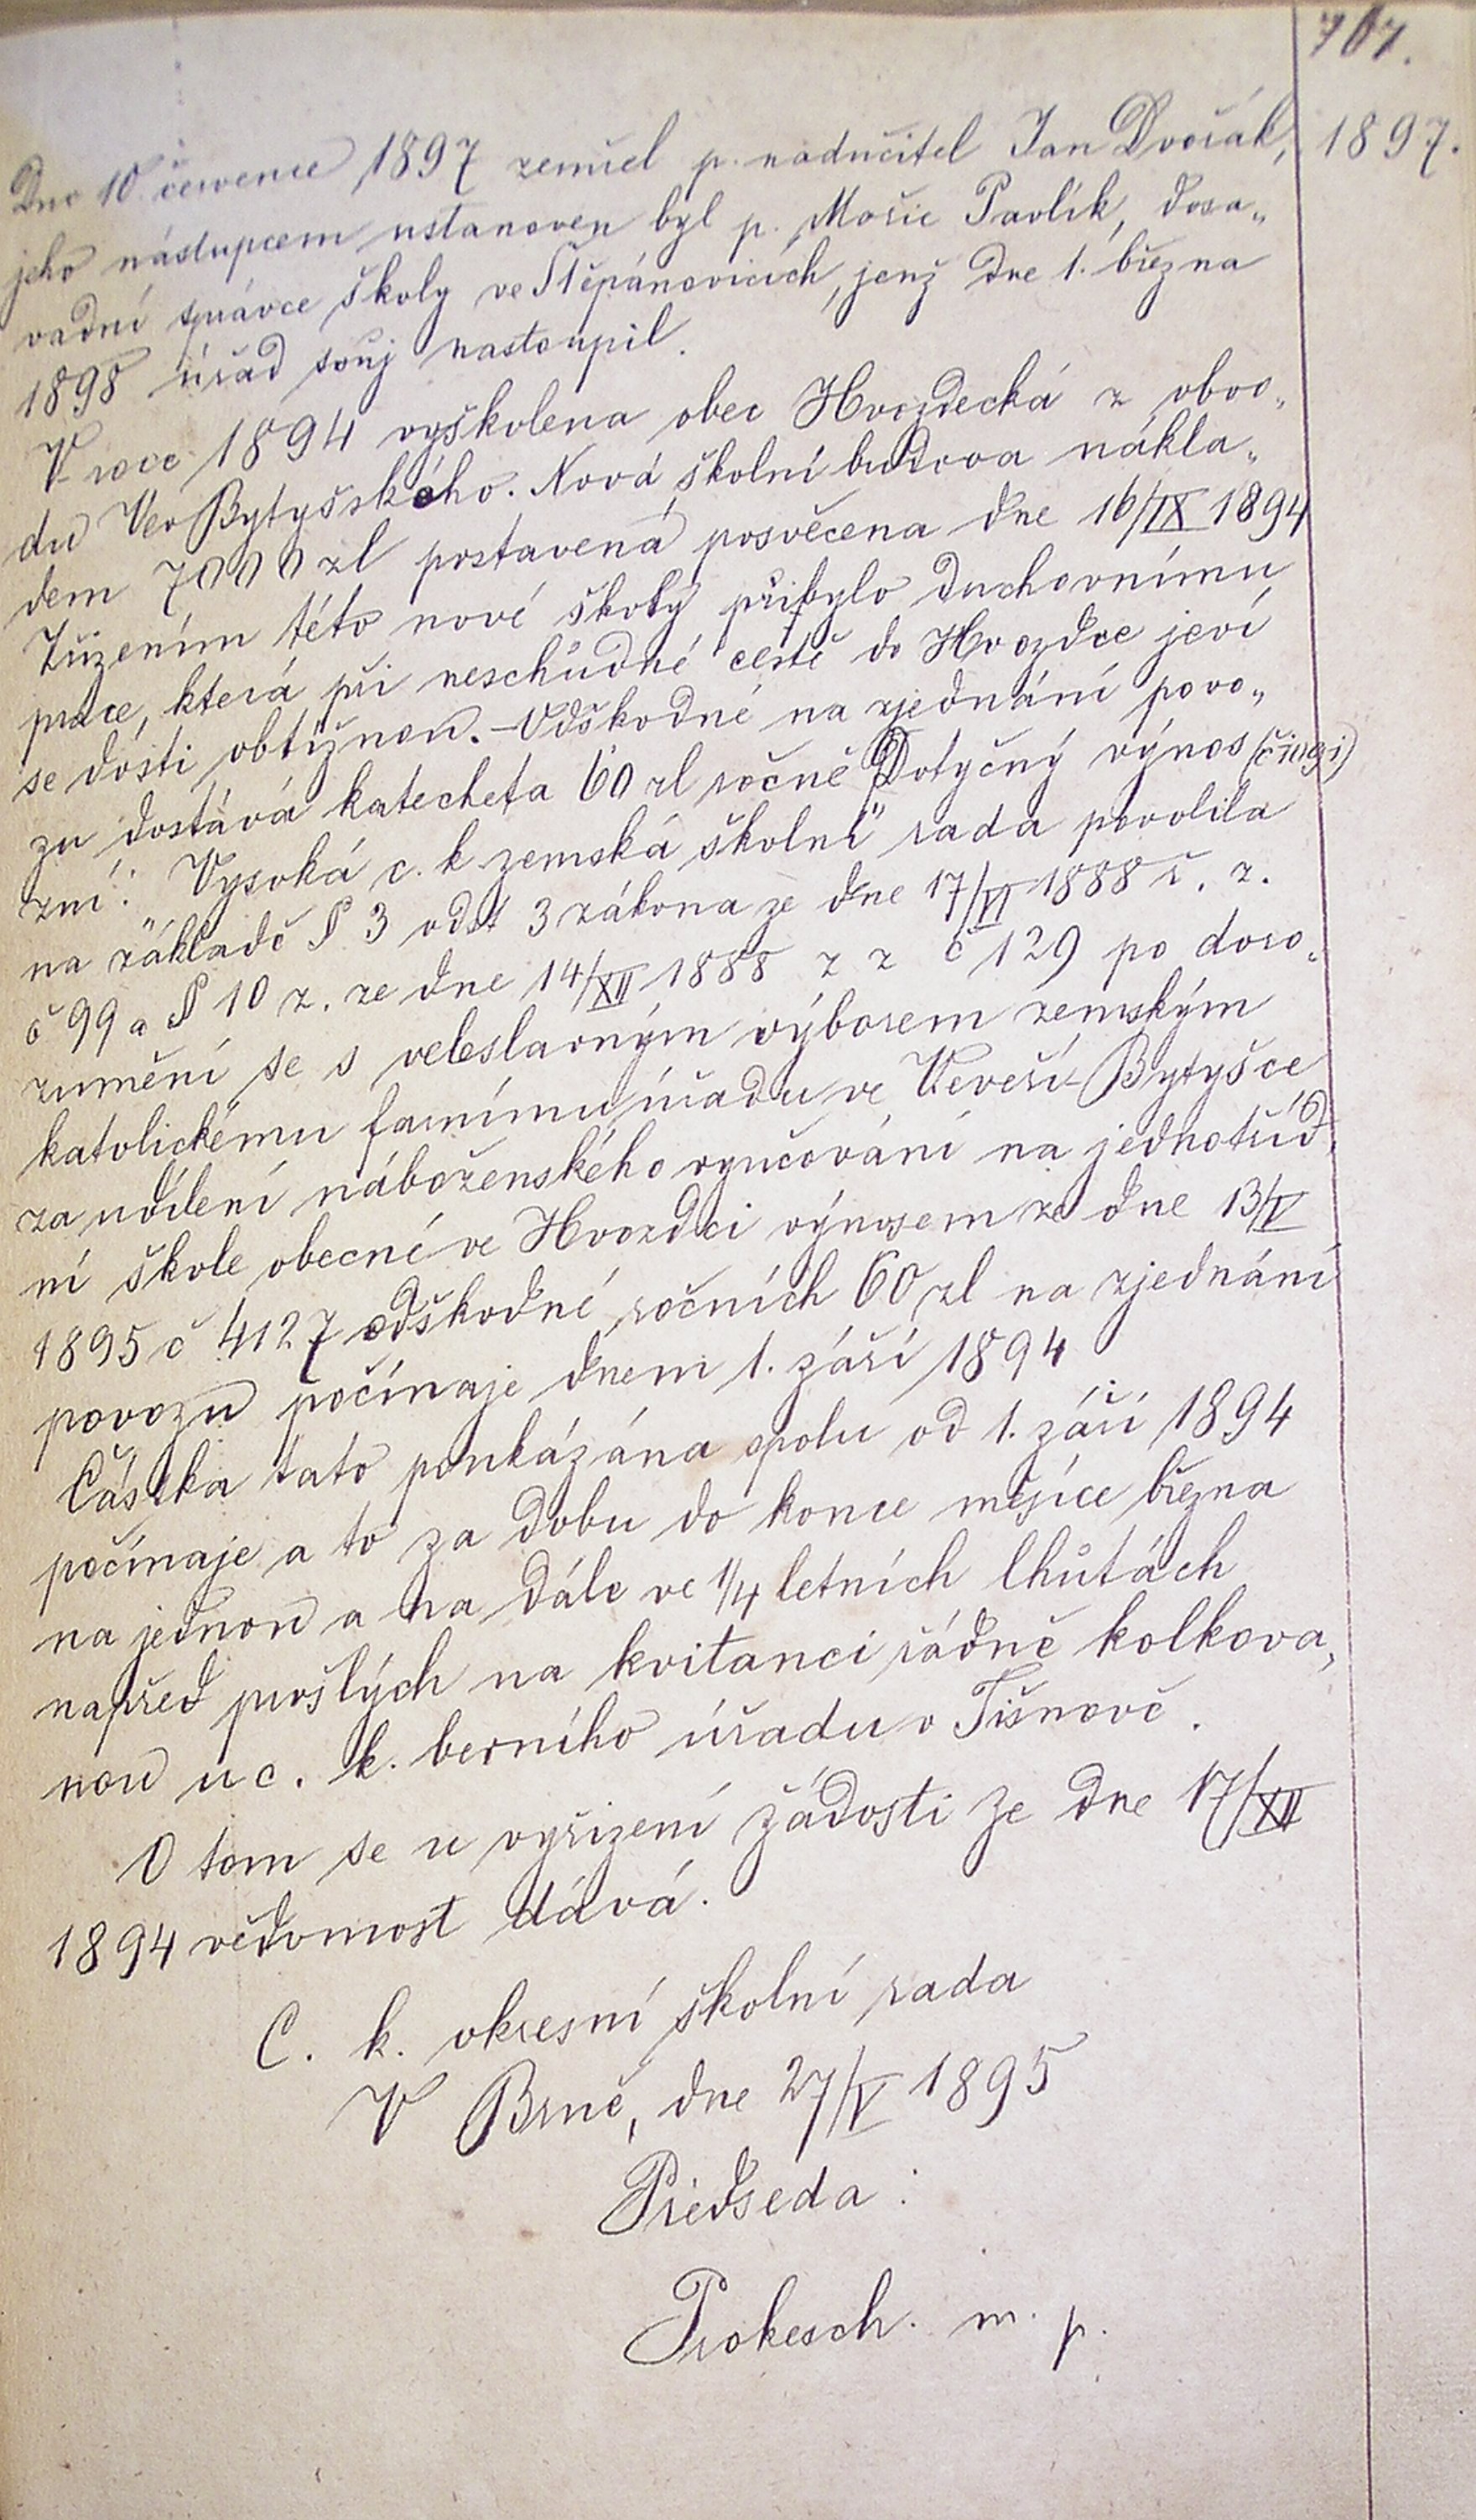 707.
1897.
Dne 10. července 1897 zemřel p. nadučitel Jan Dvořák,
jeho nástupcem ustanoven byl p. Mořic Pavlík, dosa„
vadní správce školy ve Štěpánovicích, jenž dne 1. března
1898 úřad svůj nastoupil.
V roce 1894 vyškolena obec Hvozdecká z obvo„
du Vev Bytyšského. Nová školní budova nákla„
dem 7000 zl postavená posvěcena dne 16/IX 1894
Zřízením této nové školy přibylo duchovnímu
práce, která při neschůdné cestě do Hvozdce jeví
se dosti obtížnou. – Odškodné na zjednání povo„
zu dostává katecheta 60 zl ročně Dotyčný výnos
zní: Vysoká c. k zemská školní rada povolila
na základě § 3 odst 3 zákona ze dne 17/VI 1888 ř. z.
č 99 a § 10 z. ze dne 14/XII 1888 z z č 129 po doro„
zumění se s veleslavným výborem zemským
katolickému farnímu úřadu ve Veverí-Bytyšce
za udílení náboženského vyučování na jednotříd„
ní škole obecné ve Hvozdci výnosem ze dne 13/V
1895 č 4127 odškodné ročních 60 zl na zjednání
povozu počínaje dnem 1. září 1894
Částka tato poukázána spolu od 1. září 1894
počínaje a to za dobu do konce měsíce března
na jednou a na dále ve 1/4 letních lhůtách
napřed prošlých na kvitanci řádně kolkova„
nou u c. k. berního úřadu v Tišnově.
O tom se u vyřízení žádosti ze dne 17/XII
1894 vědomost dává.
C. k. okresní školní rada
V Brně, dne 27/V 1895
Předseda:
Prokesch. m. p.